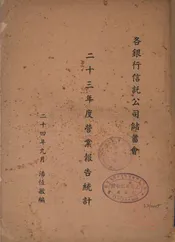 各銀行信託公司儲蓄會
二十三年度營業報告統計
二十四年九月